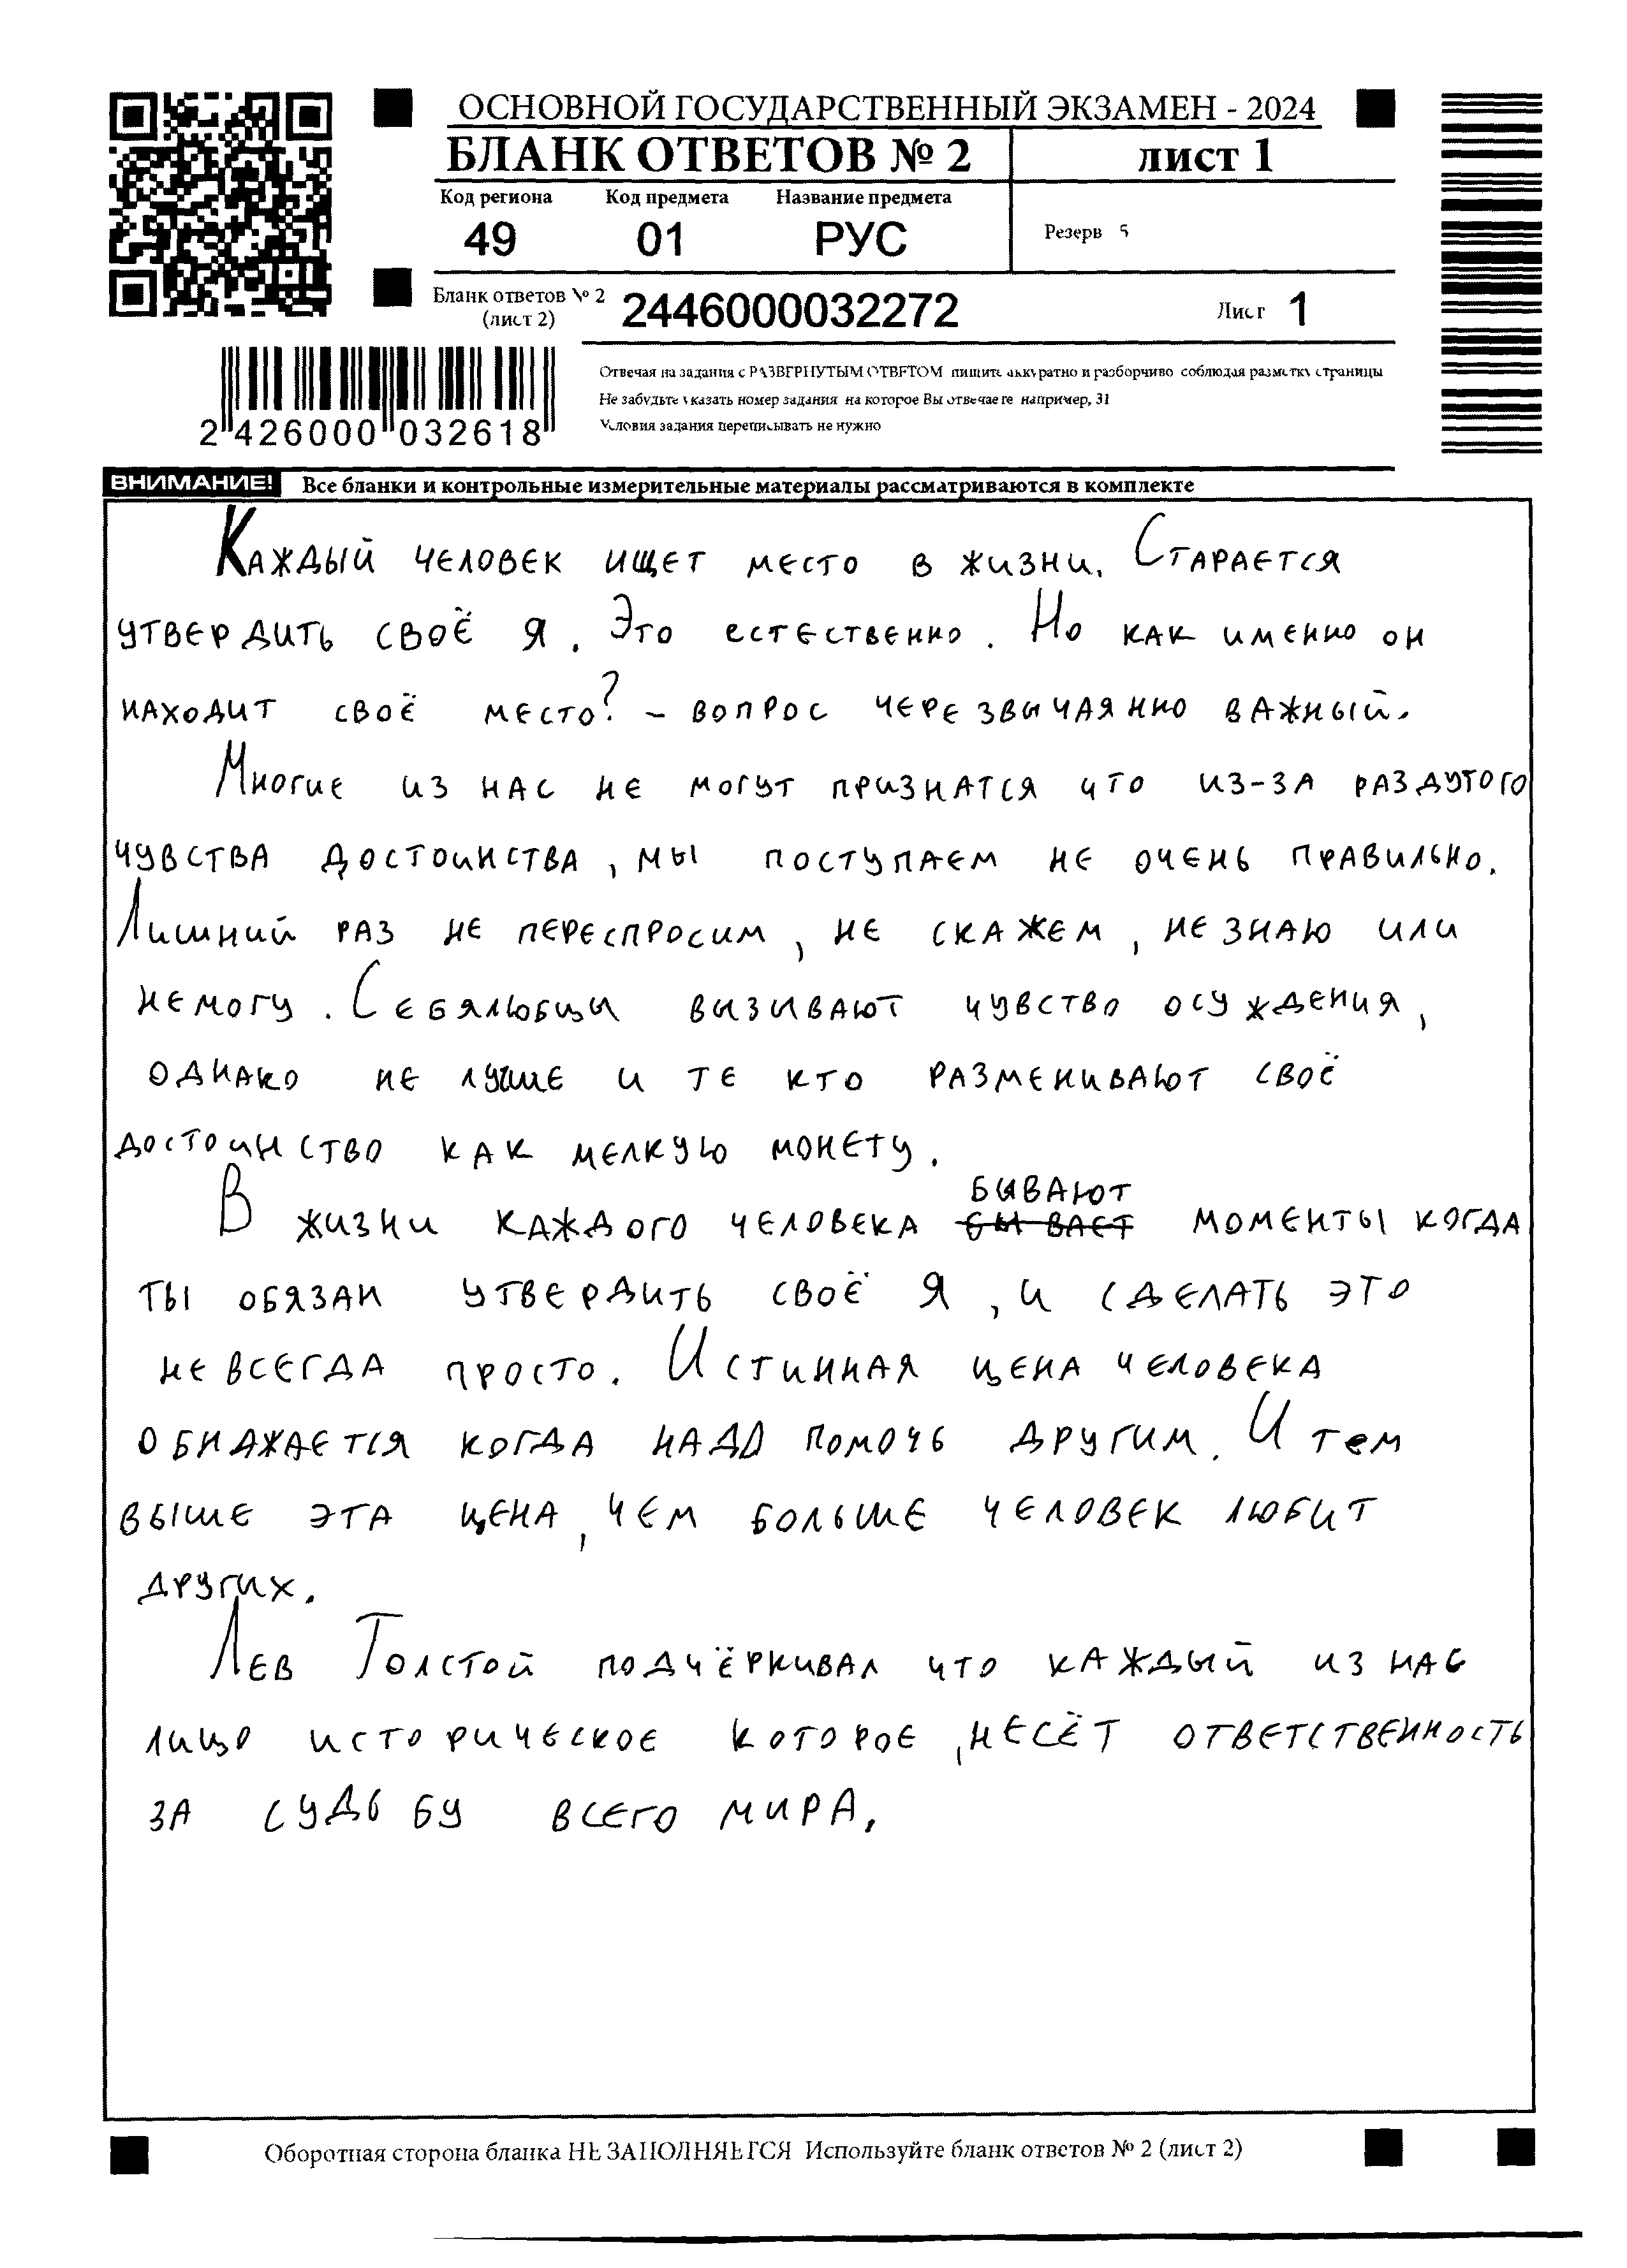 ОСНОВНОЙ ГОСУДАРСТВЕННЫЙ ЭКЗАМЕН - 2024
БЛАНК ОТВЕТОВ № 2
лист 1
Код региона Код предмета Название предмета
49 01 РУС
Резерв 5
Бланк ответов № 2
(лист 2)
2446000032272
Лист 1
Отвечая на задания с РАЗВЕРНУТЫМ ОТВЕТОМ пишите аккуратно и разборчиво соблюдая разметку страницы
Не забудьте указать номер задания на которое Вы отвечаете например, 31
Условия задания переписывать не нужно
2 426000 032618
ВНИМАНИЕ! Все бланки и контрольные измерительные материалы рассматриваются в комплекте
Каждый человек ищет место в жизни. Старается
утвердить своё я. Это естественно. Но как именно он
находит своё место? - вопрос черезвычаянно важный.
Многие из нас не могут признатся что из-за раздутого
чувства достоинства, мы поступаем не очень правильно.
Лишний раз не переспросим, не скажем, незнаю или
немогу. Себялюбцы вызывают чувство осуждения,
однако не лучше и те кто разменивают своё
достоинство как мелкую монету.
бывают
В жизни каждого человека бывает моменты когда
ты обязан утвердить своё Я, и сделать это
невсегда просто. Истинная цена человека
обнажается когда надо помочь другим. И тем
выше эта цена, чем больше человек любит
других.
Лев Толстой подчёркивал что каждый из нас
лицо историческое которое ,несёт ответственность
за судьбу всего мира.
Оборотная сторона бланка НЕ ЗАПОЛНЯЕТСЯ Используйте бланк ответов № 2 (лист 2)